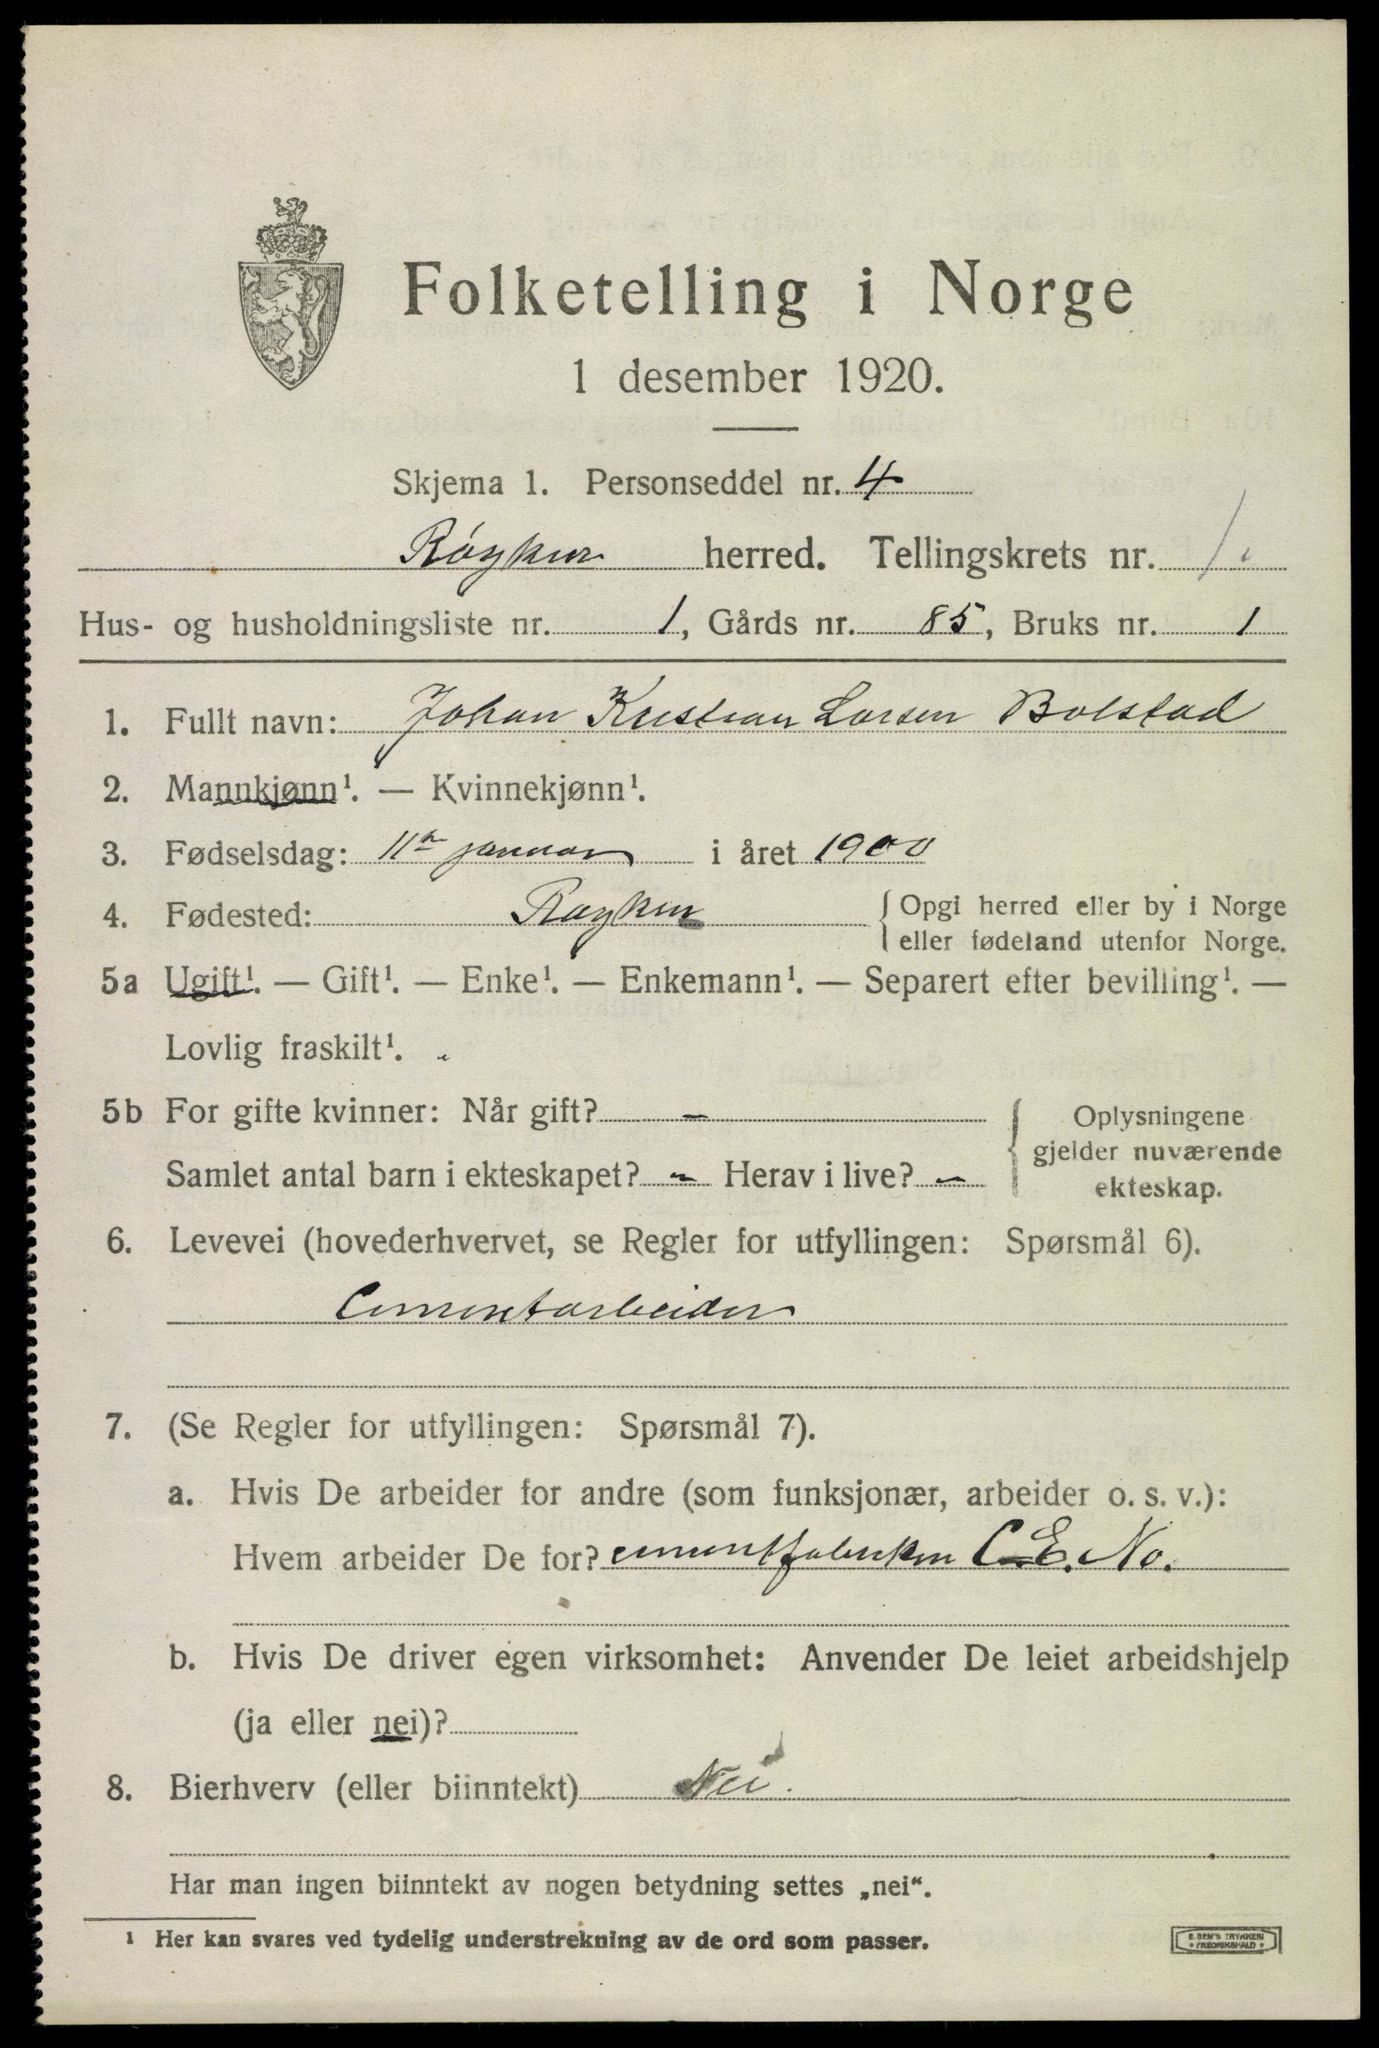 Folketelling i Norge
1 desember 1920.
Skjema 1. Personseddel nr. 4
Røyken herred. Tellingskrets nr. 1
Hus- og husholdningsliste nr. 1, Gårds nr. 85, Bruks nr. 1
1. Fullt navn: Johan Kristian Larsen Bolstad
2. Mannkjønn¹. — Kvinnekjønn¹.
3. Fødselsdag: 11te januar i året 1900
4. Fødested: Røyken { Opgi herred eller by i Norge
eller fødeland utenfor Norge.
5a Ugift¹. — Gift¹. — Enke¹. — Enkemann¹. — Separert efter bevilling¹. —
Lovlig fraskilt¹.
5b For gifte kvinner: Når gift? –
Samlet antal barn i ekteskapet? – Herav i live? –
{ Oplysningene
gjelder nuværende
ekteskap.
6. Levevei (hovederhvervet, se Regler for utfyllingen: Spørsmål 6).
Cementarbeider
7. (Se Regler for utfyllingen: Spørsmål 7).
a. Hvis De arbeider for andre (som funksjonær, arbeider o. s. v.):
Hvem arbeider De for? cementfabrikken C.E. No.
b. Hvis De driver egen virksomhet: Anvender De leiet arbeidshjelp
(ja eller nei)?
8. Bierhverv (eller biinntekt) Nei.
Har man ingen biinntekt av nogen betydning settes „nei“.
¹ Her kan svares ved tydelig understrekning av de ord som passer.
E. SEM'S TRYKKERI
• FREDRIKSHALD •